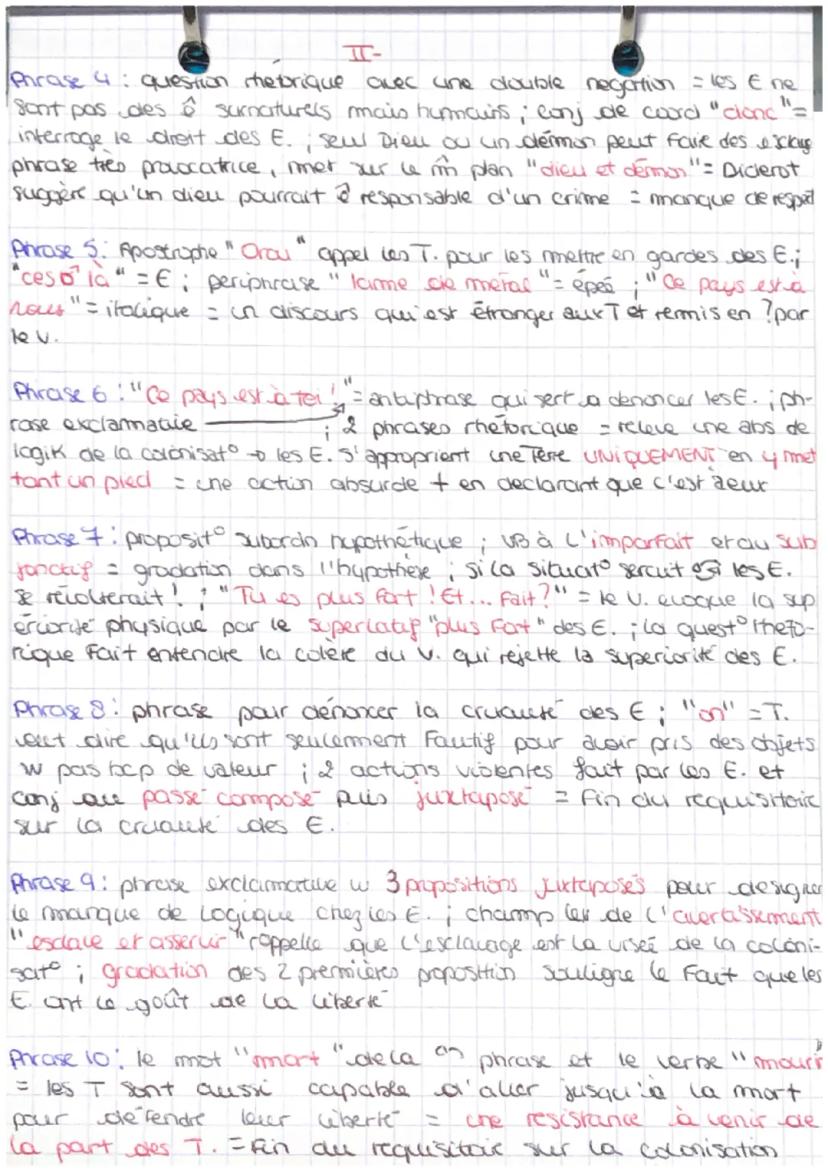 II-
Phrase 4 : question rhétorique avec une double negation = les E ne
sont pas des ê surnaturels mais humains ; conj de coord "donc" =
interroge le droit des E. ; seul Dieu ou un démon peut faire des esclavs
phrase très provocatrice, met sur le m̂ plan "dieu et démon" = Diderot
suggère qu'un dieu pourrait ê responsable d'un crime = manque de respet
Phrase 5 : Apostrophe "Orou" appel les T. pour les mettre en gardes des E. ;
"ces là" = E ; periphrase "larme de metal" = épeé ; "Ce pays est à
nous" = italique = un discours qui est étranger aux T et remis en ? par
le V.
Phrase 6 : "Ce pays est à toi !" = antiphrase qui sert a denoncer les E. ; ph-
rase exclamative ; 2 phrases rhétorique = releve une abs de
logik de la colonisat° → les E. s'approprient une Terre UNIQUEMENT en y met
tant un pied = une action absurde + en declarant que c'est à eux
Phrase 7 : proposit° subordn hypothétique ; VB à l'imparfait et au sub
jonctif = gradation dans l'hypothèse ; si la situat° serait les E.
se révolterait ! ; "Tu es plus fort ! Et... fait ?" = le V. evoque la sup
ériorité physique par le superlatif "plus fort" des E. ; la quest° rheto-
rique fait entendre la colère du V. qui rejette la superiorité des E.
Phrase 8 : phrase pour dénoncer la cruauté des E ; "on" = T.
veut dire qu'ils sont seulement fautif pour avoir pris des objets
w pas bcp de valeur ; 2 actions violentes fait par les E. et
conj au passé composé puis juxtaposé = Fin du requisitoire
sur la cruauté des E.
Phrase 9 : phrase exclamative w 3 propositions juxtaposés pour designer
le manque de logique chez les E. ; champ lex de l'
"esclave et asservir" rappelle que l'esclavage est la viseé de la coloni-
sat° ; gradation des 2 premières proposition souligne le fait que les
E. ont le goût de la liberté
Phrase 10 : le mot "mort" de la phrase et le verbe "mourir"
= les T sont aussi capable d'aller jusqu'à la mort
pour défendre leur liberté = une resistance à venir de
la part des T. = Fin du requisitoir sur la colonisation